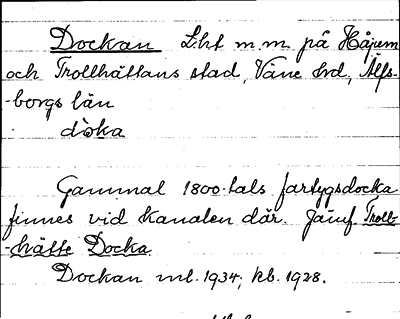 Dockan L.ht m.m. på Håjum
och Trollhättans stad, Väne hd, Älfs-
-borgs län
dòka
Gammal 1800-tals fartygsdocka
finnes vid kanalen där. Jämf. Troll-
-hätte Docka.
Dockan ml. 1934; kb. 1928.